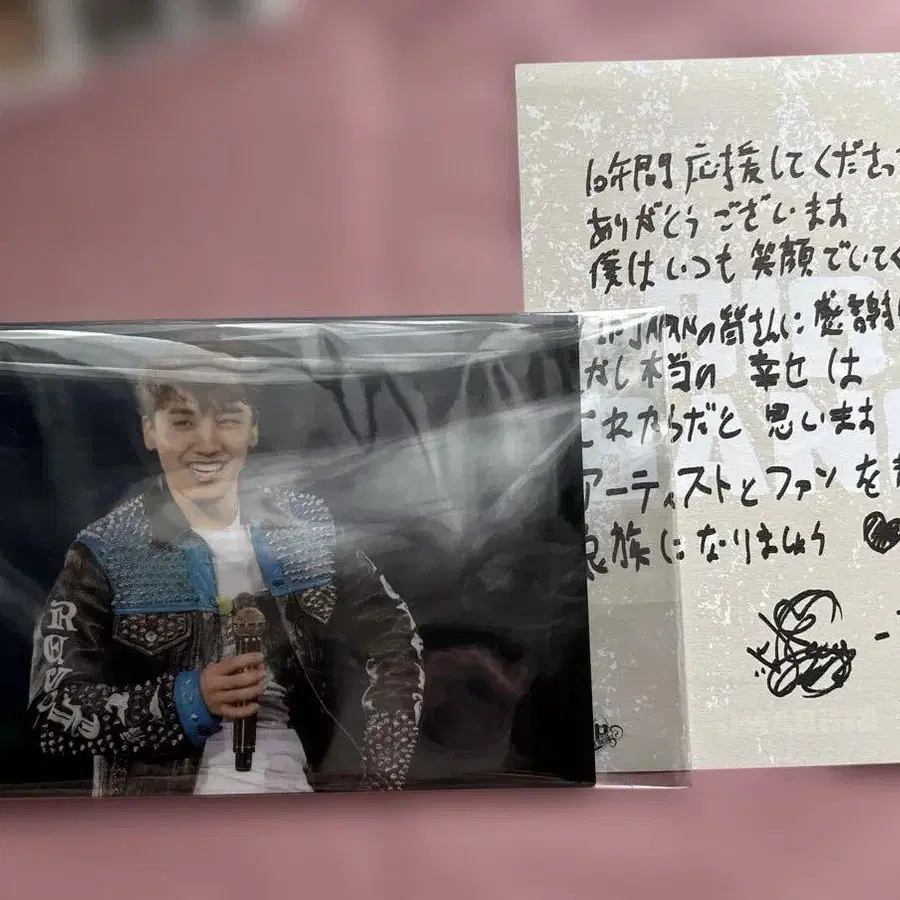 10年間 応援してくださっ
ありがとうございます
僕はいつも 笑顔でいてく
JAPANの皆さんに 感謝
本当の 幸せ は
これからだと 思います
アーティストとファン を
家族になりましょう